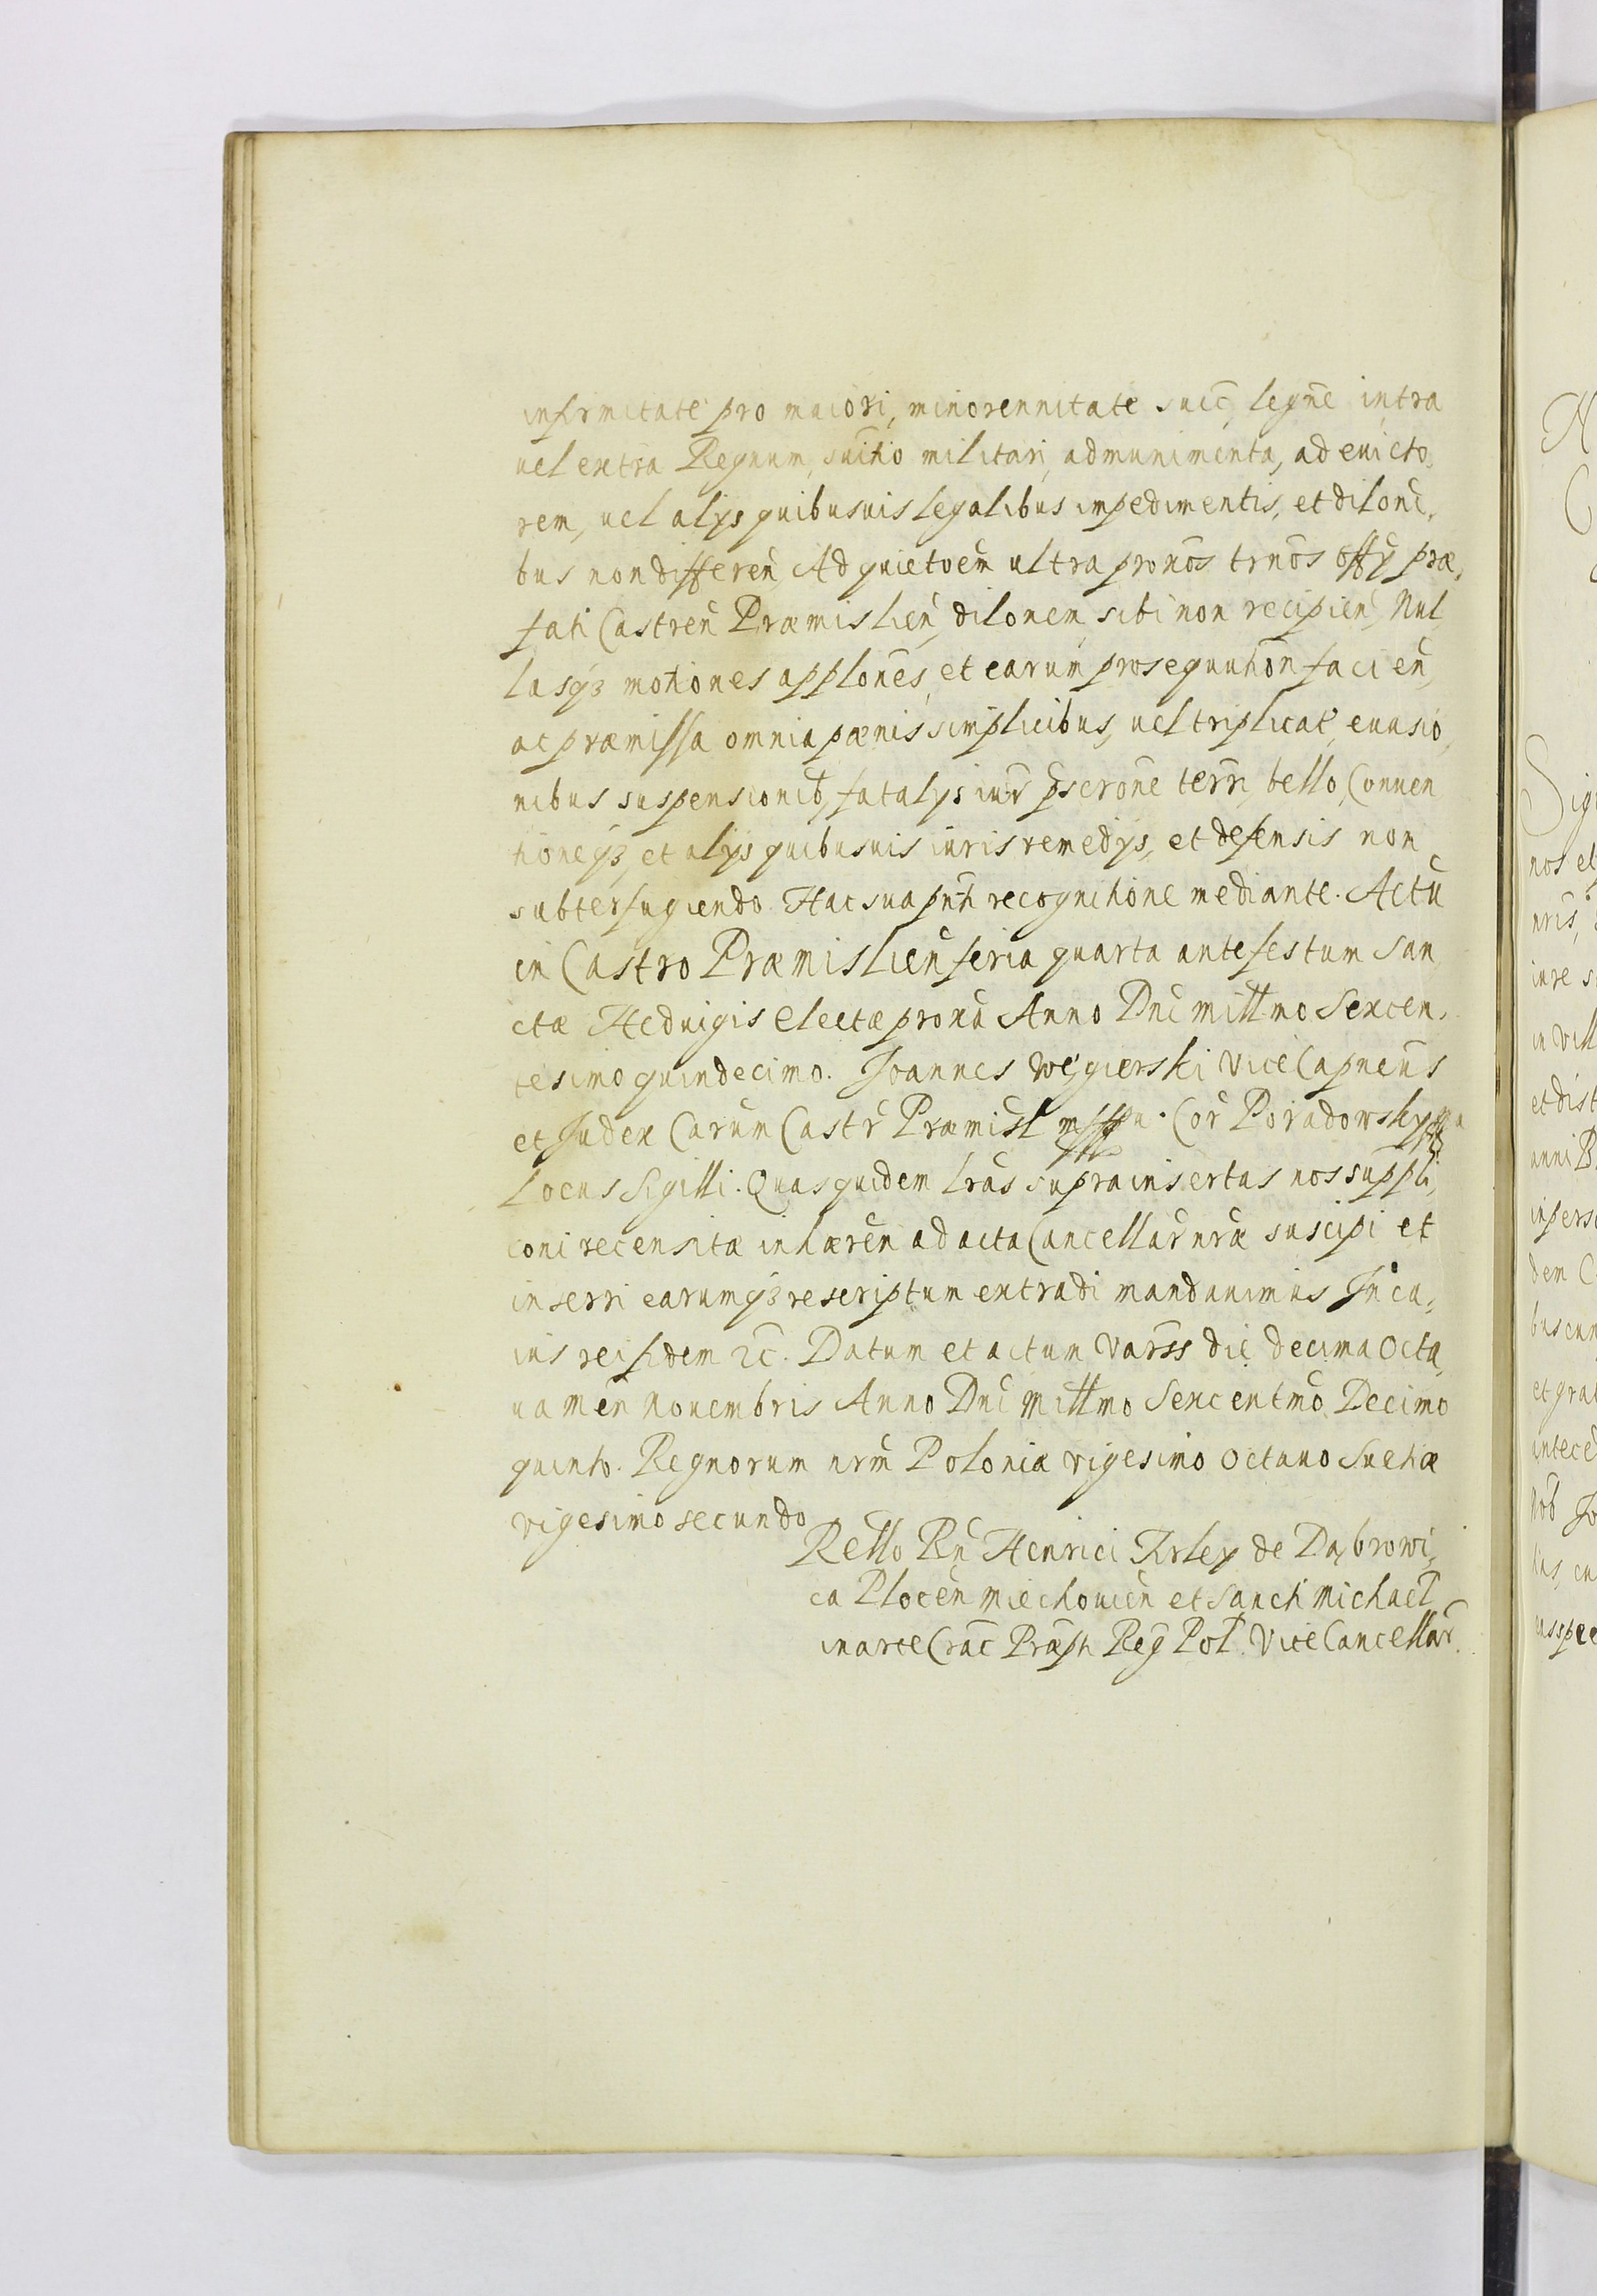 infirmitate pro maiori, minorennitate succ, legne intra
uel extra Regnum, suitio militari, admunimenta, ad euicto,
rem, uel alys quibusuis legalibus impedimentis, et diloni,
bus non differen, Ad quietoem ultra pronos trnos offy præ,
fati Castren Præmislien, dilonem sibi non recipien, Nul
lasqz motiones applones, et earum prosequution facien,
ac præmissa omnia pænis simplicibus, uel triplicat, euasio,
nibus suspensionib, fatalys iur pscrone terri, bello, Conuen
tioneqz, et alys quibusuis iuris remedys, et defensis non
subterfugiendo. Hac sua pnti recognitione mediante. Actu
in Castro Præmislien feria quarta ante festum San
ctæ Heduigis Electæ proxa Anno Dni Millmo Sexcen,
tesimo quindecimo. Joannes Węgierski ViceCapneus
et Judex Carum Castr Præmisl mppa. Cor Poradowsky
Locus Sigilli. Quas quidem lras suprainsertas nos suppli,
coni recensitæ inhæren ad acta Cancellar nræ suscipi et
inseri earumqz rescriptum extradi mandauimus In cu,
ius rei fidem zc. Datum et actum Varss die decima octa,
ua men Nouembris Anno Dni Millmo Sexcentmo Decimo
quinto. Regnorum nrm Poloniæ vigesimo octauo Suetiæ
vigesimo secundo
Rello Rn Henrici Firley de Dąbrowi,
ca Plocen Miechouien et Sancti Michael
in arce Crac Præpti Reg Pol. ViceCancellar.